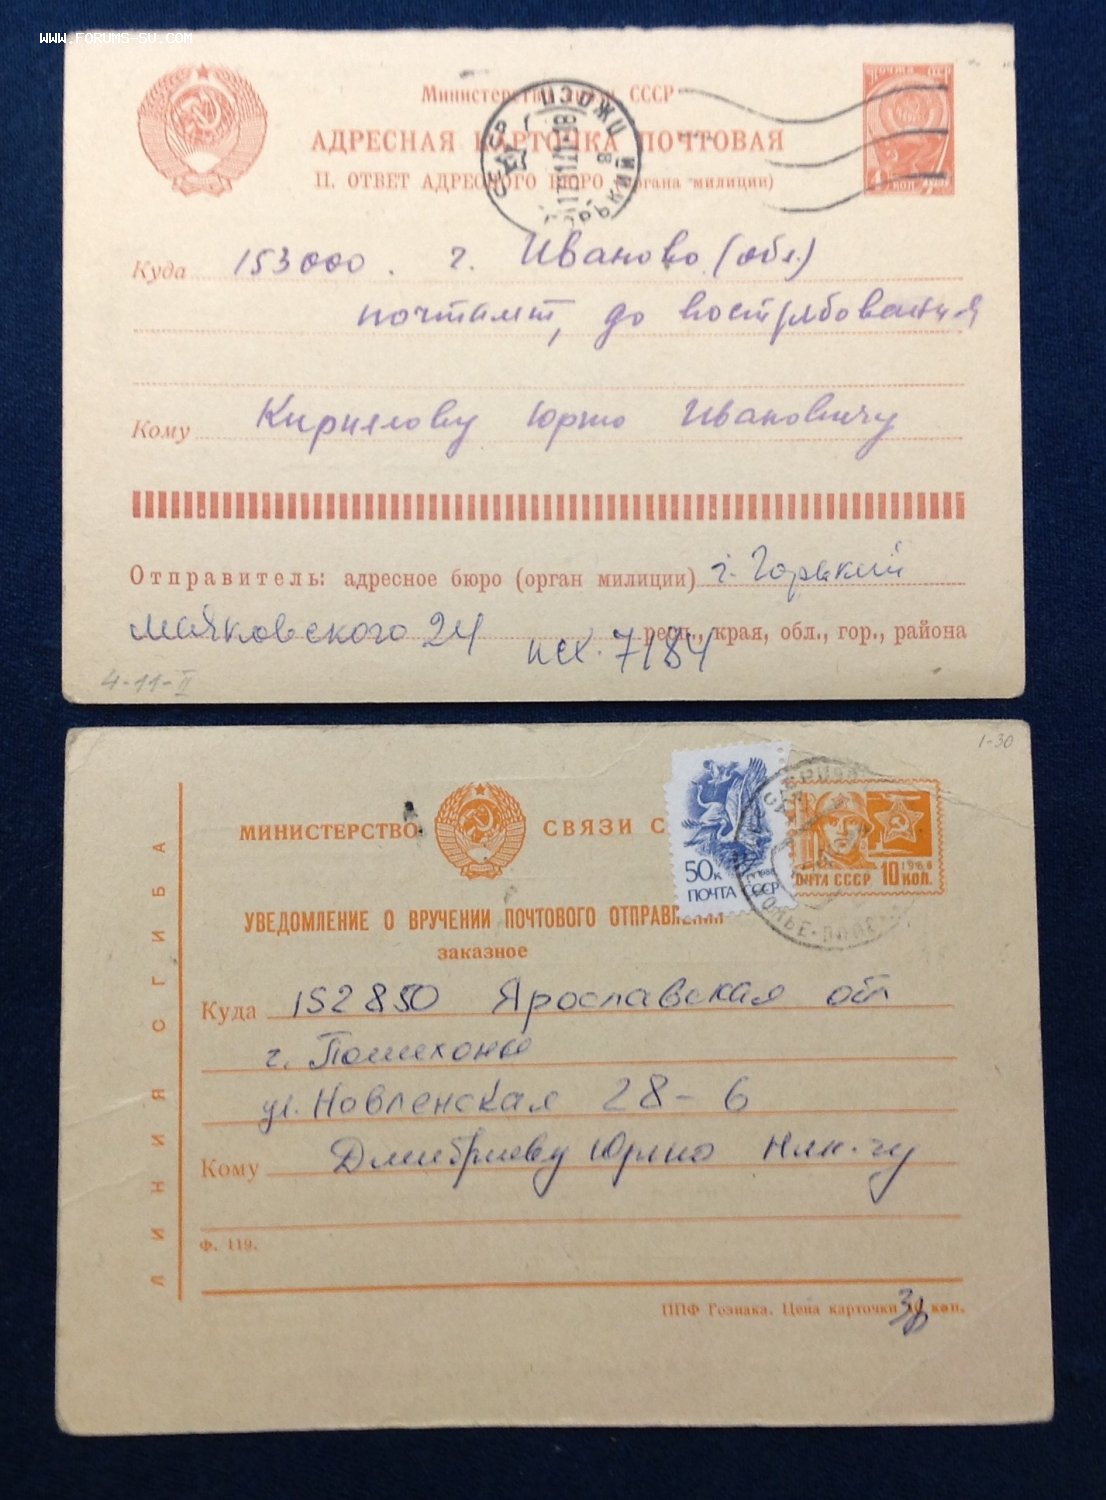 www.forums-su.com
Министерство связи СССР
АДРЕСНАЯ КАРТОЧКА ПОЧТОВАЯ
П. ОТВЕТ АДРЕСНОГО БЮРО (органа милиции)
Почта СССР
4 коп
СССР
Куда 153000. г. Иваново (обл.)
почтамт, до востребования
Кому Кириллову Юрию Ивановичу
Отправитель: адресное бюро (орган милиции) г. Горький
Маяковского 24 респ., края, обл., гор., района
исх. 7184
4-11-II
1-30
МИНИСТЕРСТВО СВЯЗИ С
50к 1988
ПОЧТА СССР
1966
ПОЧТА СССР 10 КОП.
УВЕДОМЛЕНИЕ О ВРУЧЕНИИ ПОЧТОВОГО ОТПРАВЛЕНИЯ
заказное
Куда 152850 Ярославская обл
г. Пошехонье
ул. Новленская 28-6
Кому Дмитриеву Юрию Ник-чу
Ф. 119.
ППФ Гознака. Цена карточки коп.
ЛИНИЯ СГИБА